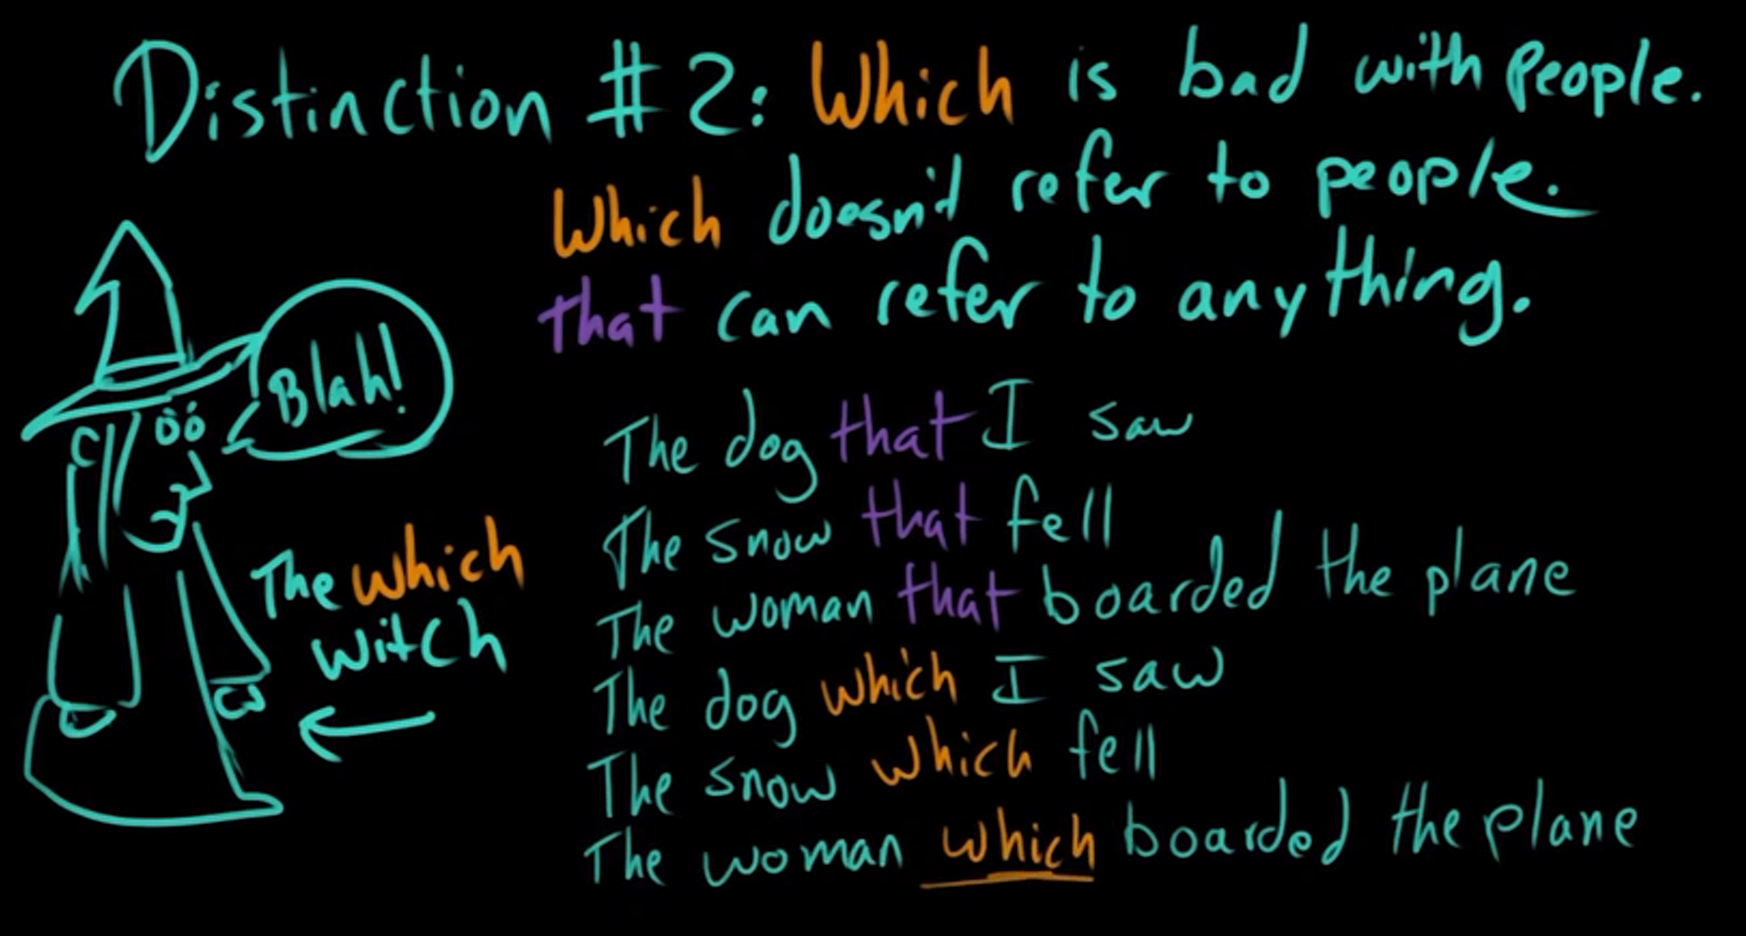 Distinction #2: Which is bad with people.
Which doesn't refer to people.
that can refer to anything.
Blah!
The which
witch
The dog that I saw
The snow that fell
The woman that boarded the plane
The dog which I saw
The snow which fell
The woman which boarded the plane